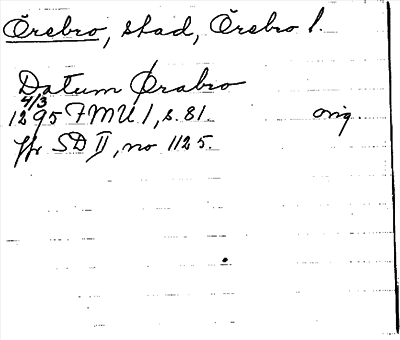 Örebro, stad, Örebro l.
Datum Ørabro
4/3
1295 FMU 1, s. 81. orig.
jfr SD II, no 1125.